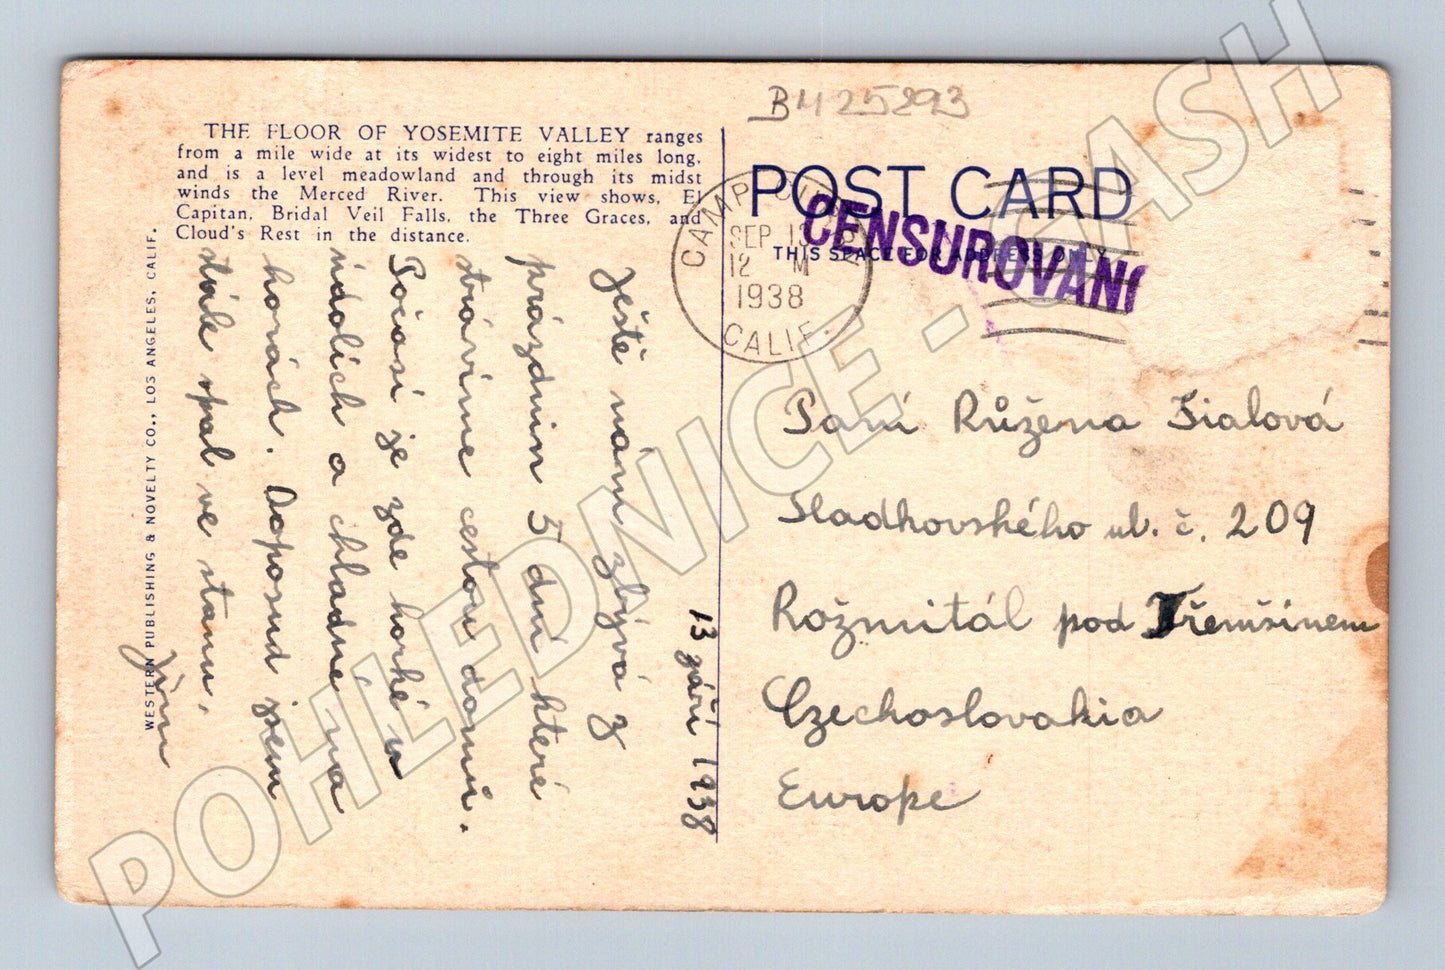 B425293
THE FLOOR OF YOSEMITE VALLEY ranges
from a mile wide at its widest to eight miles long,
and is a level meadowland and through its midst
winds the Merced River. This view shows, El
Capitan, Bridal Veil Falls, the Three Graces, and
Cloud's Rest in the distance.
POST CARD
THIS SPACE FOR ADDRESS ONLY
CAMP
SEP 13
12 M
1938
CALIF.
CENSUROVÁNO
13 září 1938
Ještě nám zbývá z
prázdnin 5 dní které
strávíme cestou domů.
Počasí je zde horké v
údolích a chladné na
horách. Doposud jsem
stále spal ve stanu.
Jim
Paní Růžena Fialová
Sladkovského ul. č. 209
Rožmitál pod Třemšínem
Czechoslovakia
Europe
WESTERN PUBLISHING & NOVELTY CO., LOS ANGELES, CALIF.
POHLEDNICE - GASH